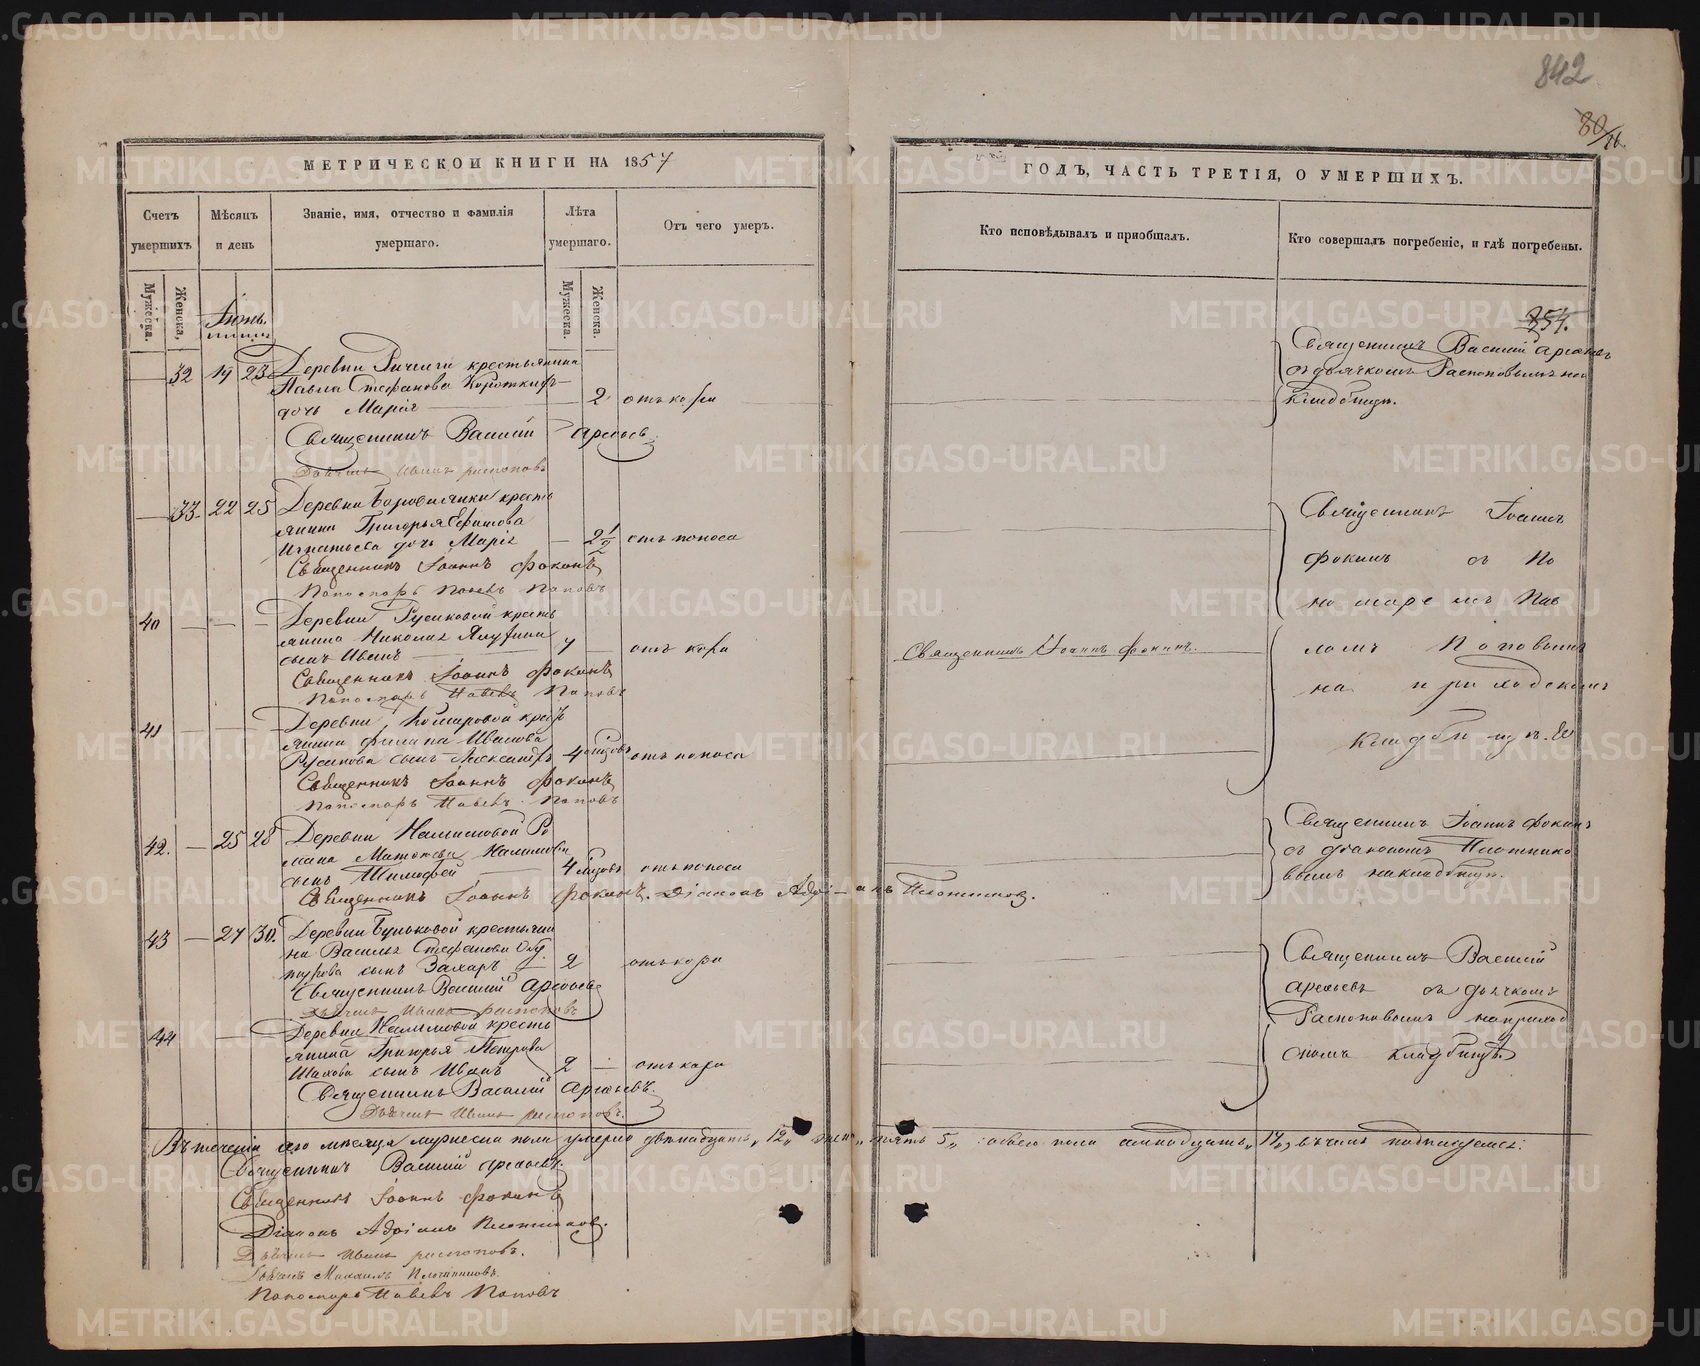 842
80/76
МЕТРИЧЕСКОЙ КНИГИ НА 1857
ГОДЪ, ЧАСТЬ ТРЕТІЯ, О УМЕРШИХЪ.
Счетъ умершихъ
Мѣсяцъ и день
Званіе, имя, отчество и фамилія умершаго.
Лѣта умершаго.
Отъ чего умеръ.
Кто исповѣдывалъ и приобщалъ.
Кто совершалъ погребеніе, и гдѣ погребены.
Мужеска.
Женска.
Мужеска.
Женска.
Іюнь.
854.
32 19 23 Деревни крестьянина
Павла Стефанова Короткихъ
дочь Марія 2 отъ кори
Священникъ Василій
съ дьячкомъ Распоповымъ на
кладбищѣ.
Священникъ Василій
Дьячекъ Иванъ Распоповъ
33 22 25 Деревни Бородинки кресть
янина Григорья Ефимова
Игнатьева дочь Марія 2 1/2 отъ поноса
Священникъ Іоаннъ Фокинъ
Пономарь Павелъ Поповъ
Священникъ Іоаннъ
Фокинъ съ По
номаремъ Пав
40 Деревни Русаковой кресть
янина Николая
сынъ Иванъ 7 отъ кори
Священникъ Іоаннъ Фокинъ.
ломъ Поповымъ
на приходскомъ
кладбищѣ.
Священникъ Іоаннъ Фокинъ
Пономарь Павелъ Поповъ
41 Деревни Комаровой кресть
янина Филипа Иванова
Русакова сынъ Александръ 4 отъ поноса
Священникъ Іоаннъ Фокинъ
Пономарь Павелъ Поповъ
42. 25 28 Деревни Налимовой Ро
мана Матвеева Налимова
сынъ Тимофей 4 отъ поноса
Священникъ Іоаннъ Фокинъ. Діаконъ Адріанъ Плотниковъ.
Священникъ Іоаннъ Фокинъ
съ діакономъ Плотнико
вымъ на кладбищѣ.
43 27 30. Деревни Буньковой крестьяни
на Василья Стефанова
сынъ Захаръ 2 отъ кори
Священникъ Василій
Дьячекъ Иванъ Распоповъ
Священникъ Василій
съ дьячкомъ
Распоповымъ на приход
скомъ кладбищѣ.
44 Деревни Налимовой кресть
янина Григорья Петрова
сынъ Иванъ 2 отъ кори
Священникъ Василій
Дьячекъ Иванъ Распоповъ.
Въ теченіи сего мѣсяца мужеска пола умерло двѣнадцать „12„ жен. пять 5„ обоего пола семнадцать„ 17„ въ чемъ подписуемся:
Священникъ Василій
Священникъ Іоаннъ Фокинъ
Діаконъ Адріанъ Плотниковъ.
Дьячекъ Иванъ Распоповъ.
Дьячекъ Михаилъ Плотниковъ.
Пономарь Павелъ Поповъ
METRIKI.GASO-URAL.RU